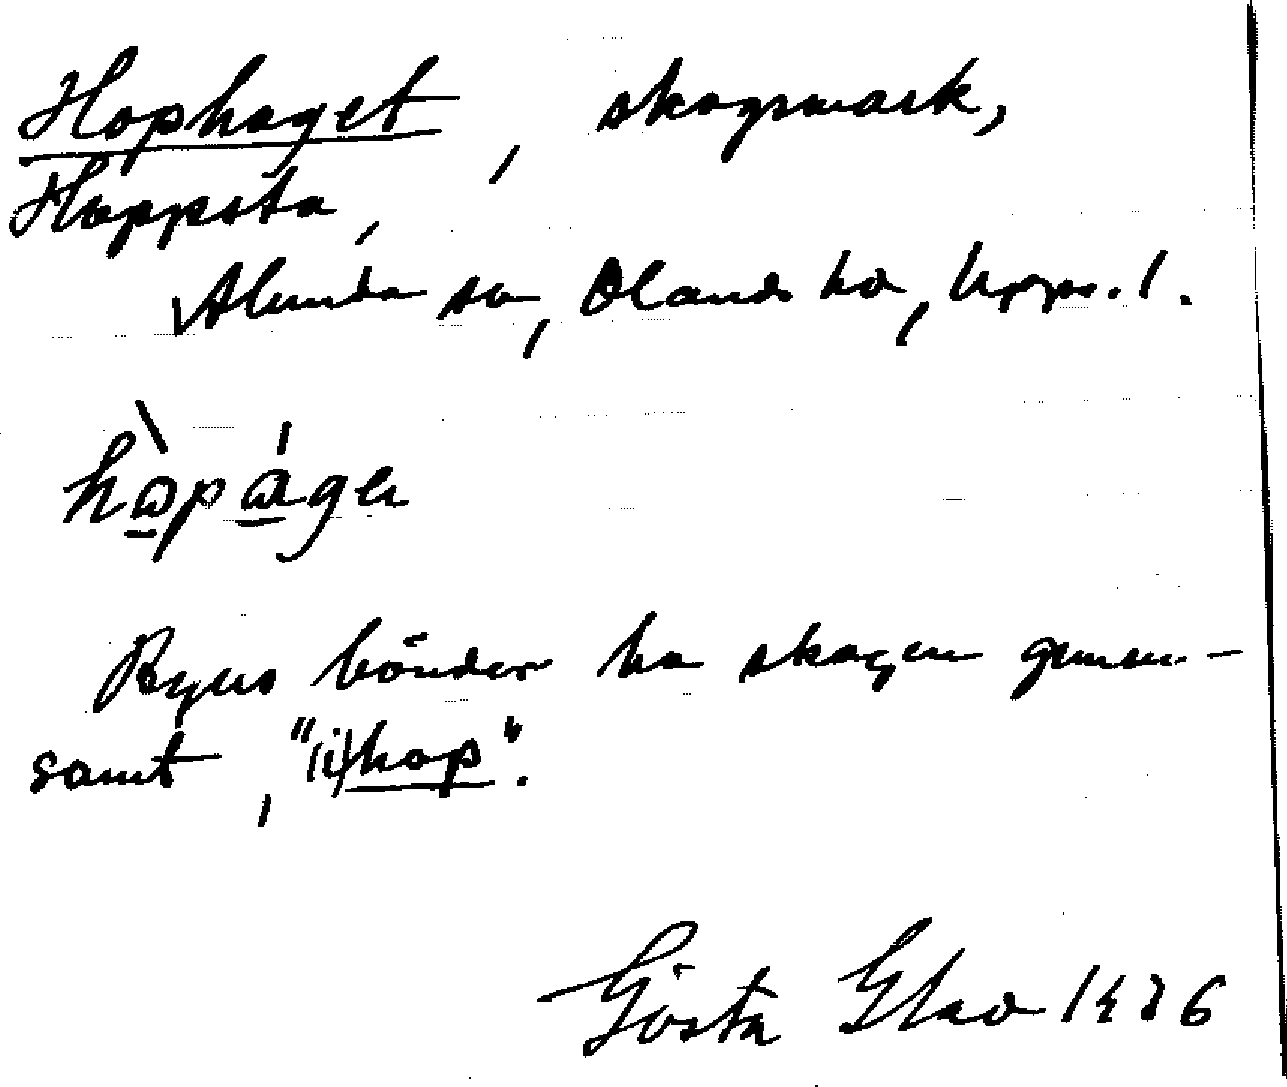 Hophaget, skogsmark,
Hoppsta,
Alunda sn, Olands hd, Upps. l.
hòpágen
Byns bönder ha skogen gemen-
samt, "(i)hop".
Gösta